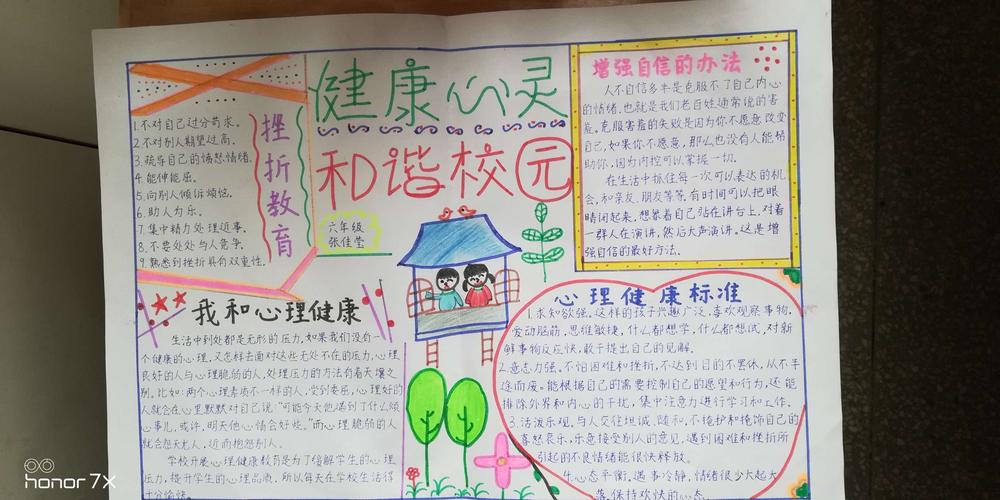 健康心灵
和谐校园
六年级
张佳莹
挫折教育
1.不对自己过分苛求。
2.不对别人期望过高。
3.疏导自己的愤怒情绪.
4.能伸能屈。
5.向别人倾诉烦恼。
6.助人为乐。
7.集中精力处理近事。
8.不要处处与人竞争。
9.熟悉到挫折具有双重性。
增强自信的办法
人不自信多半是克服不了自己内心
的情绪.也就是我们老百姓通常说的害
羞。克服害羞的失败是因为你不愿意改变
自己,如果你不愿意,那么也没有人能帮
助你,因为内控可以掌握一切.
在生活中抓住每一次可以表达的机
会,和亲友、朋友等等,有时间可以把眼
睛闭起来,想象着自己站在讲台上,对着
一群人在演讲,然后大声演讲。这是增
强自信的最好方法.
我和心理健康
生活中到处都是无形的压力,如果我们没有一
个健康的心理,又怎样去面对这些无处不在的压力,心理
良好的人与心理脆弱的人,处理压力的方法有着天壤之
别。比如:两个心理素质不一样的人,受到委屈,心理好的
人就会在心里默默对自己说:"可能今天他遇到了什么烦
心事儿,或许,明天他心情会好些。"而心理脆弱的人
就会怨天尤人,近而抱怨别人。
学校开展心理健康教育是为了缓解学生的心理
压力,提升学生的心理品质,所以每天在学校生活得
十分愉快。
心理健康标准
1.求知欲强,这样的孩子兴趣广泛,喜欢观察事物,
爱动脑筋,思维敏捷,什么都想学,什么都想试,对新
鲜事物反应快,敢于提出自己的见解。
2.意志力强。不怕困难和挫折,不达到目的不罢休,从不半
途而废。能根据自己的需要控制自己的愿望和行力,还能
排除外界和内心的干扰,集中注意力进行学习和工作。
3.活泼乐观,与人交往坦诚、随和,不掩护和掩饰自己的
喜怒哀乐,乐意接受别人的意见,遇到困难和挫折所
引起的不良情绪能很快释放。
4.心态平衡,遇事冷静,情绪很少大起大
落,保持欢快的心态。
honor 7X